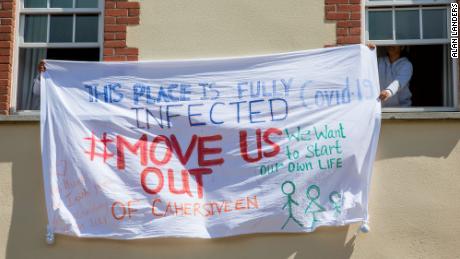 THIS PLACE IS FULLY Covid-19
INFECTED
#MOVE US
OUT
OF CAHERSIVEEN
We Want
to Start
Our Own LIFE
ALAN LANDERS